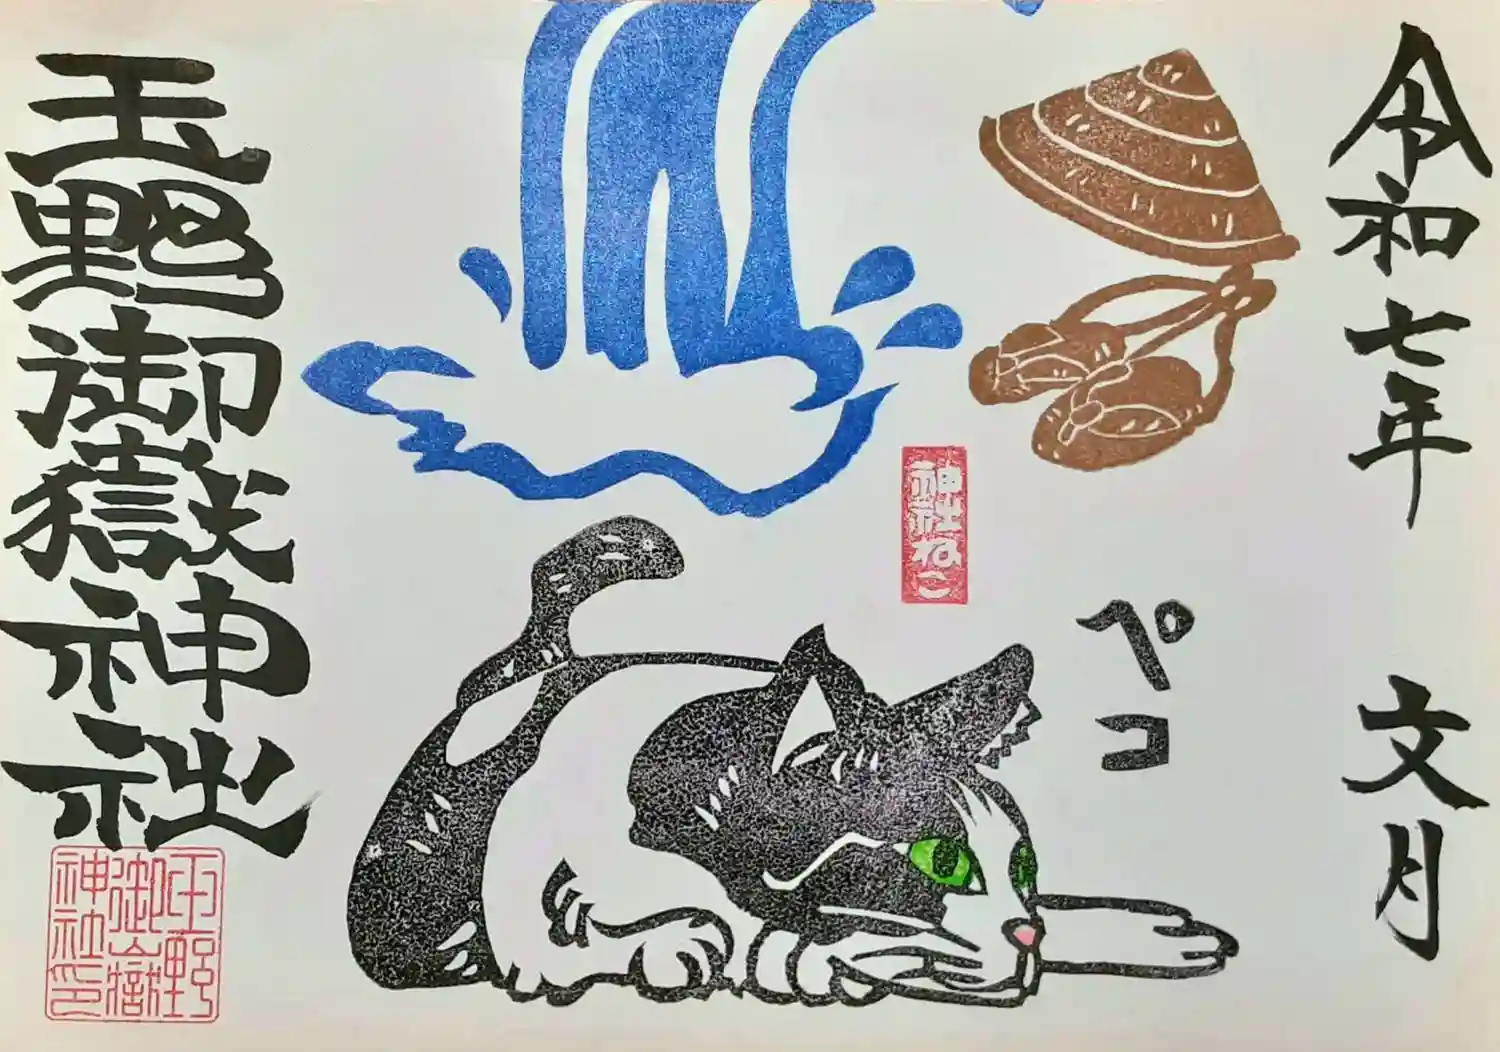 令和七年 文月
ペコ
神社ねこ
玉野御嶽神社
玉野
御嶽
神社印